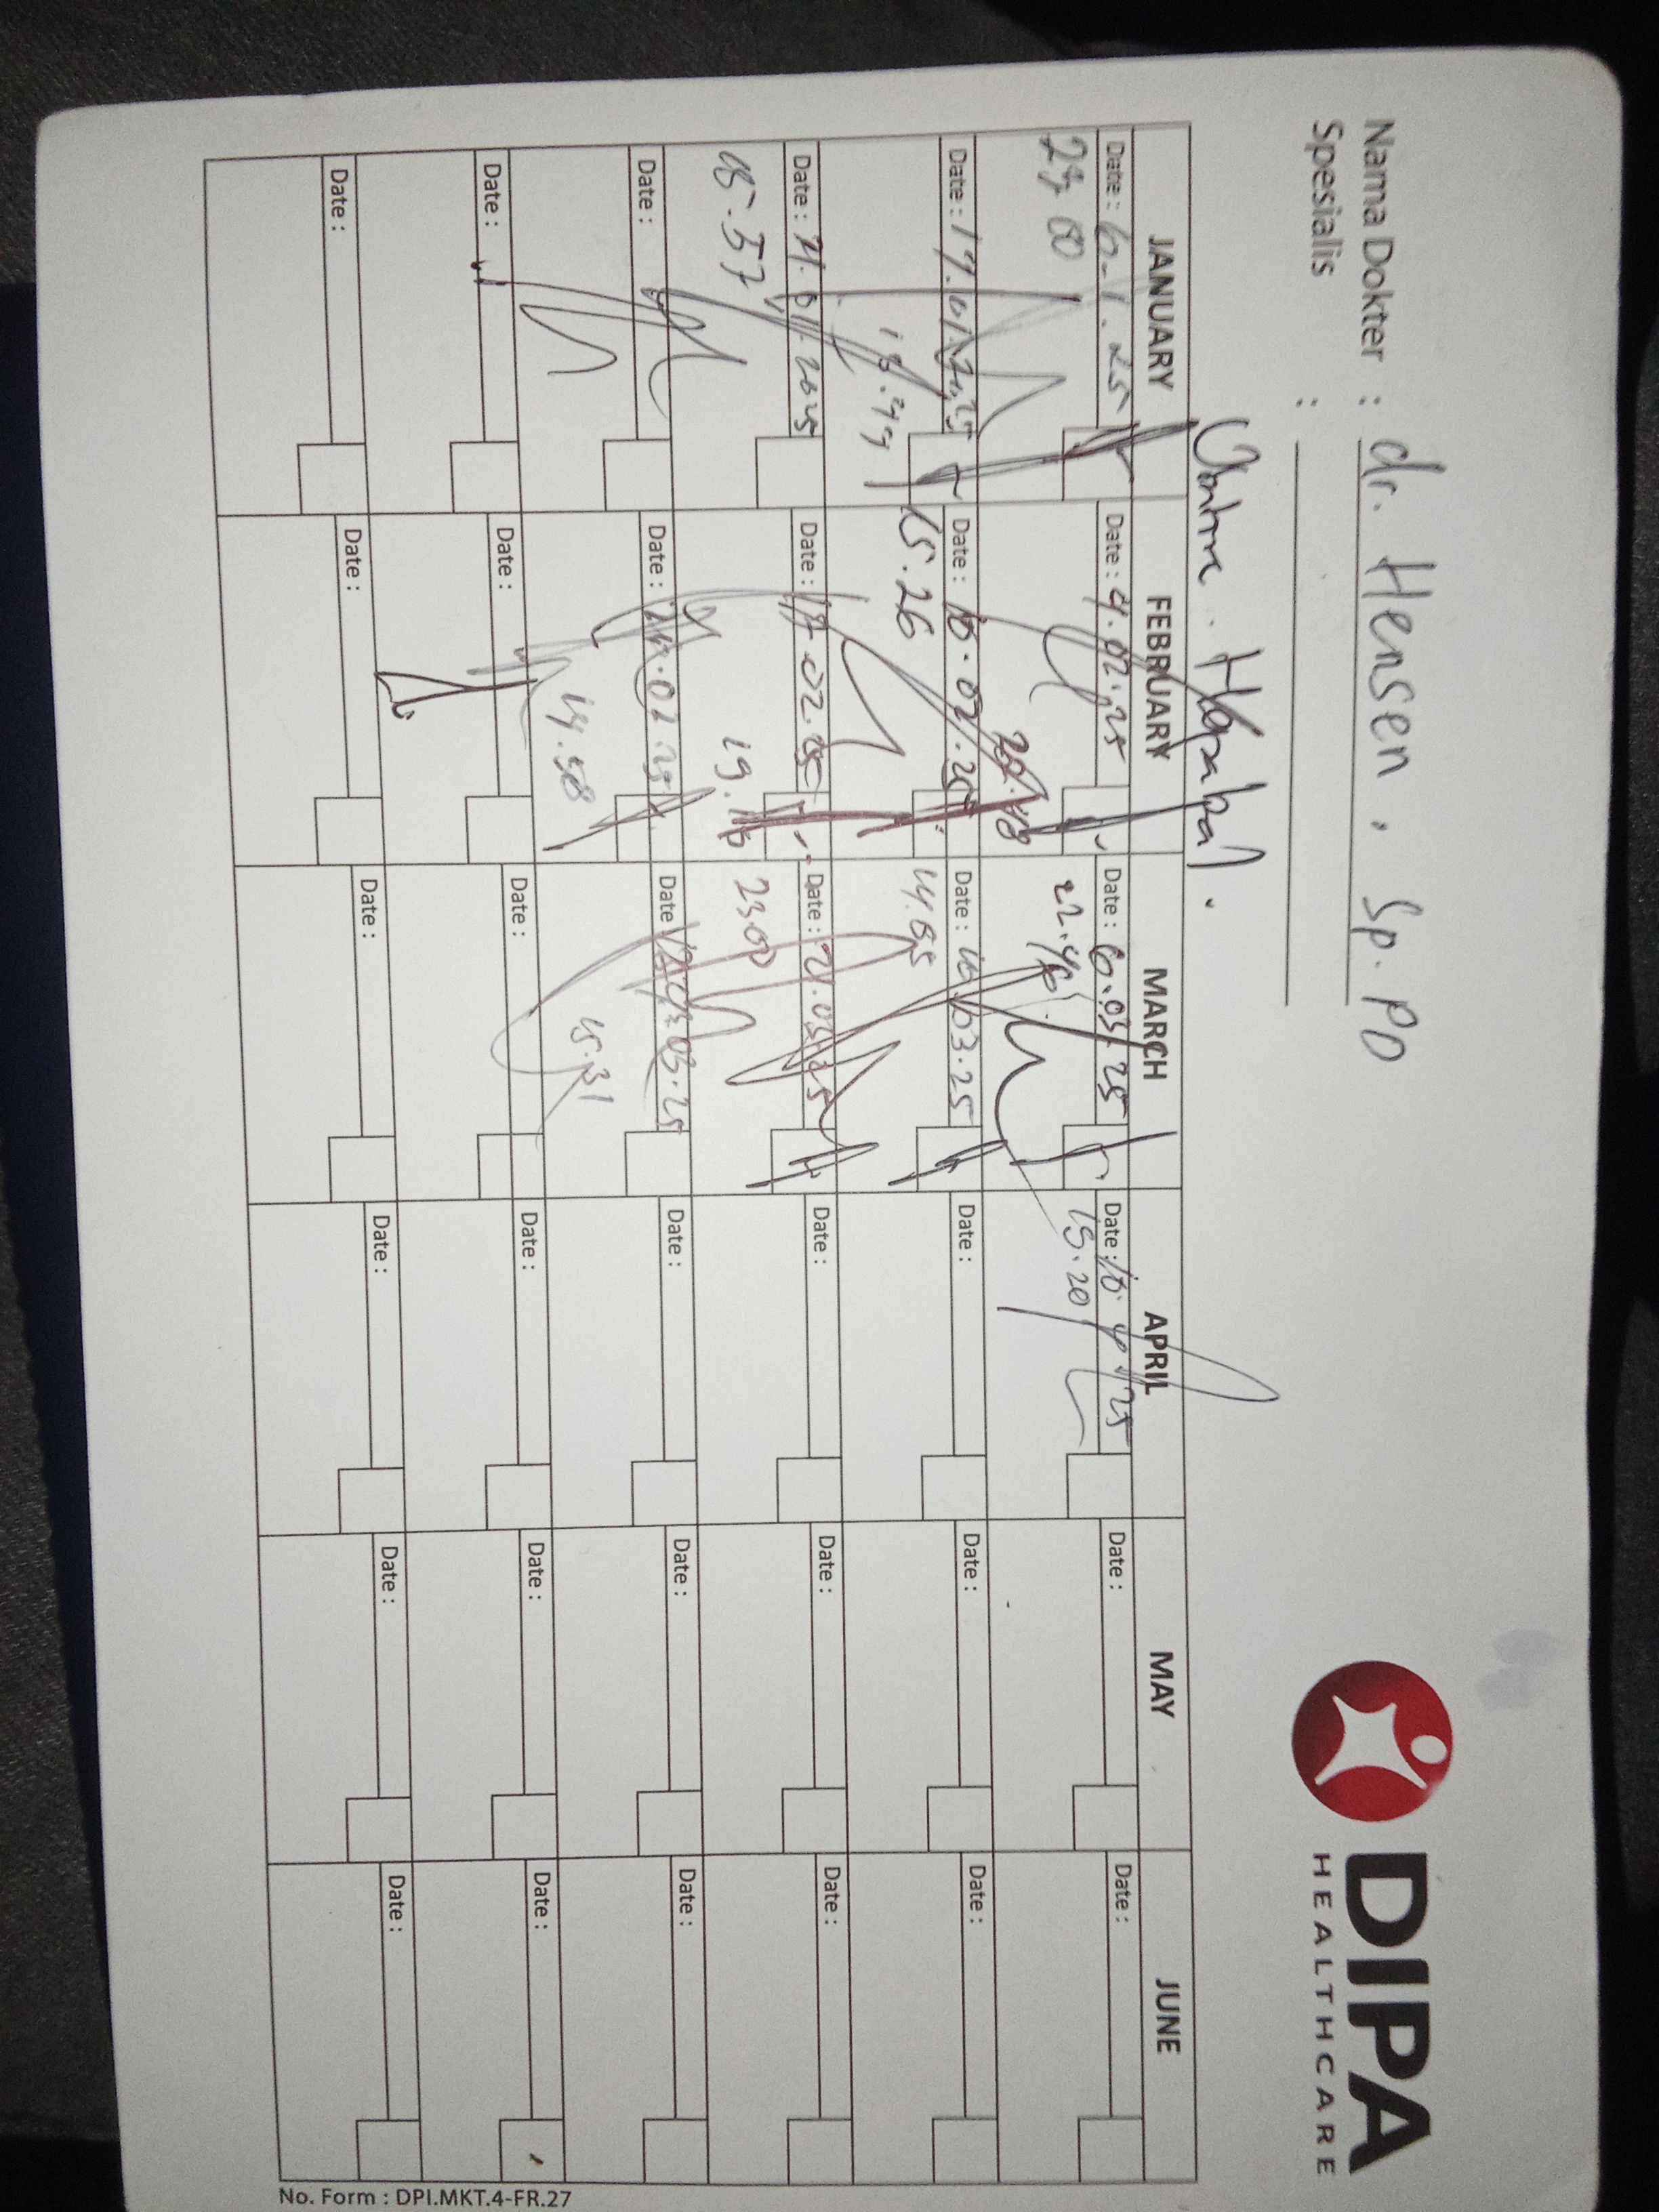 Nama Dokter : dr. Hensen, Sp. PD
Spesialis :
DIPA
HEALTHCARE
JANUARY FEBRUARY MARCH APRIL MAY JUNE
Date : 6-1.25 Date : 4.02.25 Date : 6.03.25 Date : 16.4.25 Date : Date :
20.48 22.46 15.20
Date : 17.01.2025 Date : 10.02.25 Date : 10.03.25 Date : Date : Date :
15.26
Date : 21.01.2025 Date : 17.02.25 Date : 21.03.25 Date : Date : Date :
15.57 19.16 23.00
Date : Date : Date : Date : Date : Date :
14.58 15.31
Date : Date : Date : Date : Date : Date :
Date : Date : Date : Date : Date : Date :
No. Form : DPI.MKT.4-FR.27